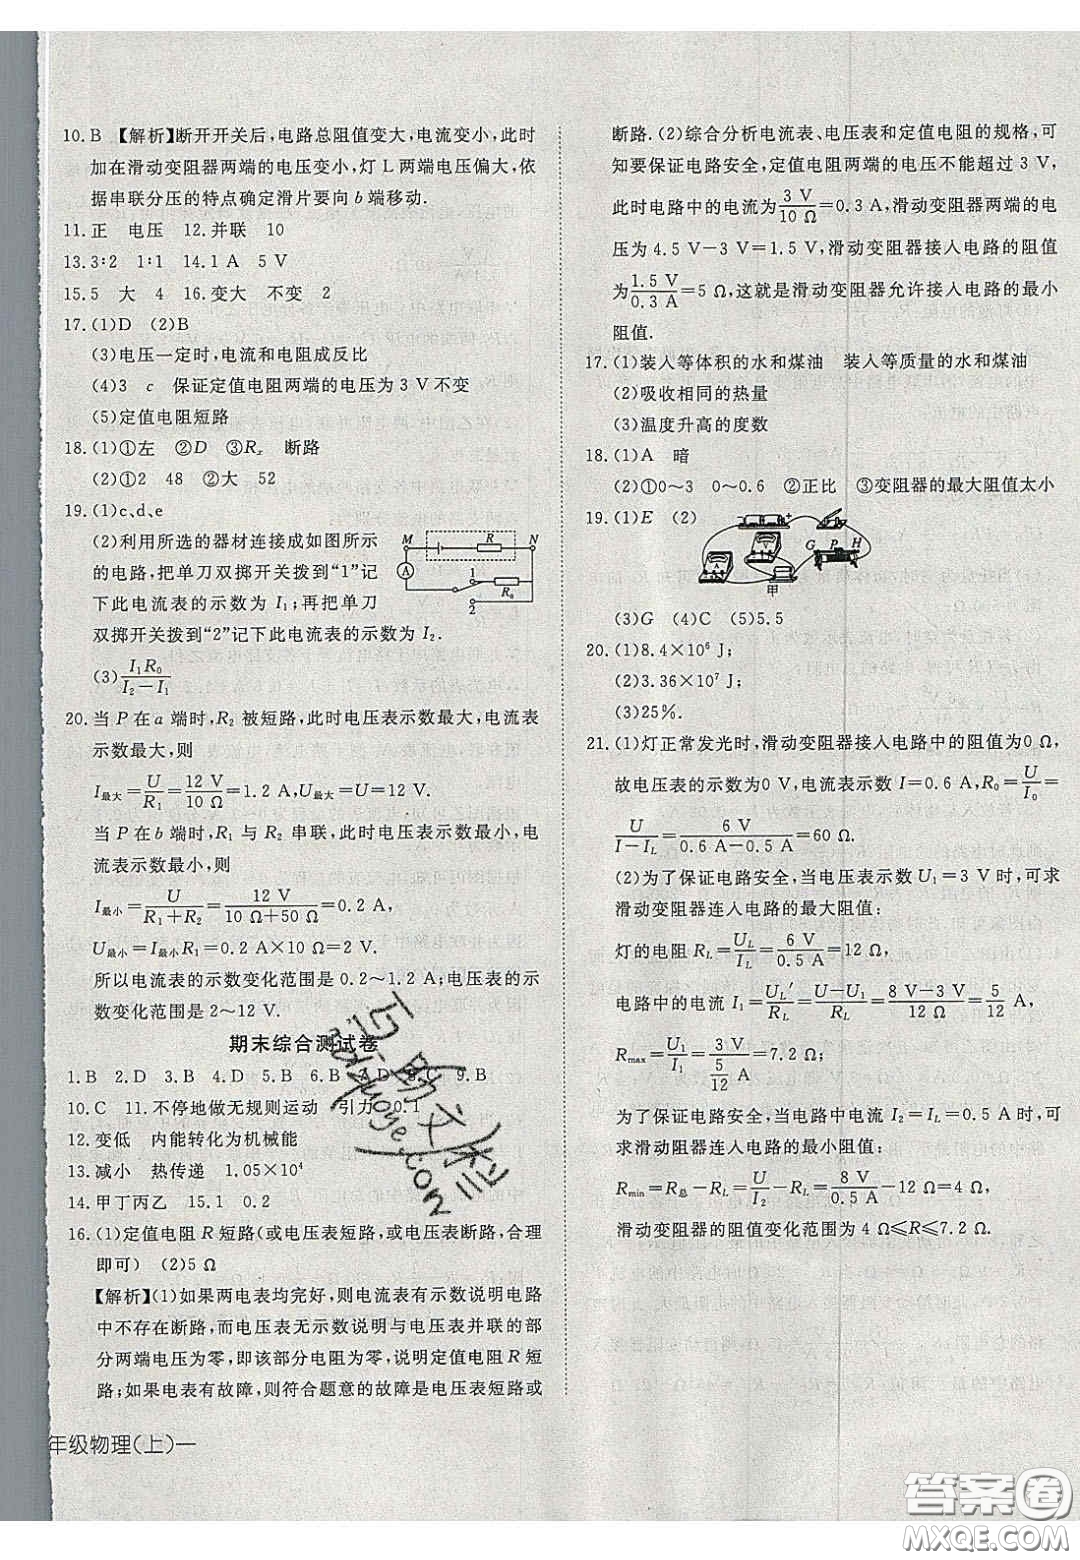 10. B 【解析】断开开关后,电路总阻值变大,电流变小,此时
加在滑动变阻器两端的电压变小,灯 L 两端电压偏大,依
据串联分压的特点确定滑片要向 b 端移动.
11. 正 电压 12. 并联 10
13. 3∶2 1∶1 14. 1 A 5 V
15. 5 大 4 16. 变大 不变 2
17. (1)D (2)B
(3)电压一定时,电流和电阻成反比
(4)3 c 保证定值电阻两端的电压为 3 V 不变
(5)定值电阻短路
18. (1)①左 ②D ③Rx 断路
(2)①2 48 ②大 52
19. (1)c、d、e
(2)利用所选的器材连接成如图所示
的电路,把单刀双掷开关拨到“1”记
下此电流表的示数为 I₁;再把单刀
双掷开关拨到“2”记下此电流表的示数为 I₂.
M R N A 1 2 R₀
(3) I₁R₀/(I₂-I₁)
20. 当 P 在 a 端时,R₂ 被短路,此时电压表示数最大,电流表
示数最大,则
I最大=U/R₁=12 V/10 Ω=1.2 A,U最大=U=12 V.
当 P 在 b 端时,R₁ 与 R₂ 串联,此时电压表示数最小,电
流表示数最小,则
I最小=U/(R₁+R₂)=12 V/(10 Ω+50 Ω)=0.2 A,
U最小=I最小R₁=0.2 A×10 Ω=2 V.
所以电流表的示数变化范围是 0.2~1.2 A;电压表的示
数变化范围是 2~12 V.
期末综合测试卷
1. B 2. D 3. B 4. D 5. B 6. B 7. D 8. C 9. B
10. C 11. 不停地做无规则运动 引力 0.1
12. 变低 内能转化为机械能
13. 减小 热传递 1.05×10⁴
14. 甲丁丙乙 15. 1 0.2
16. (1)定值电阻 R 短路(或电压表短路,或电压表断路,合理
即可) (2)5 Ω
【解析】(1)如果两电表均完好,则电流表有示数说明电路
中不存在断路,而电压表无示数说明与电压表并联的部
分两端电压为零,即该部分电阻为零,说明定值电阻 R 短
路;如果电表有故障,则符合题意的故障是电压表短路或
年级物理(上)一
断路. (2)综合分析电流表、电压表和定值电阻的规格,可
知要保证电路安全,定值电阻两端的电压不能超过 3 V,
此时电路中的电流为3 V/10 Ω=0.3 A,滑动变阻器两端的电
压为 4.5 V-3 V=1.5 V,滑动变阻器接入电路的阻值
为1.5 V/0.3 A=5 Ω,这就是滑动变阻器允许接入电路的最小
阻值.
17. (1)装入等体积的水和煤油 装入等质量的水和煤油
(2)吸收相同的热量
(3)温度升高的度数
18. (1)A 暗
(2)①0~3 0~0.6 ②正比 ③变阻器的最大阻值太小
19. (1)E (2)
G P H 甲
(3)G (4)C (5)5.5
20. (1)8.4×10⁶ J;
(2)3.36×10⁷ J;
(3)25%.
21. (1)灯正常发光时,滑动变阻器接入电路中的阻值为0 Ω,
故电压表的示数为0 V,电流表示数 I=0.6 A,R₀=U/I₀=
U/(I-I_L)=6 V/(0.6 A-0.5 A)=60 Ω.
(2)为了保证电路安全,当电压表示数 U₁=3 V 时,可求
滑动变阻器连入电路的最大阻值:
灯的电阻 R_L=U_L/I_L=6 V/0.5 A=12 Ω,
电路中的电流 I₁=U_L′/R_L=(U-U₁)/R_L=(8 V-3 V)/12 Ω=5/12 A,
Rmax=U₁/I₁=3 V/(5/12 A)=7.2 Ω;
为了保证电路安全,当电路中电流 I₂=I_L=0.5 A 时,可
求滑动阻器连入电路的最小阻值:
Rmin=R总-R_L=U/I₂-R_L=8 V/0.5 A-12 Ω=4 Ω,
滑动变阻器的阻值变化范围为 4 Ω≤R≤7.2 Ω.
答案圈
MXQE.COM